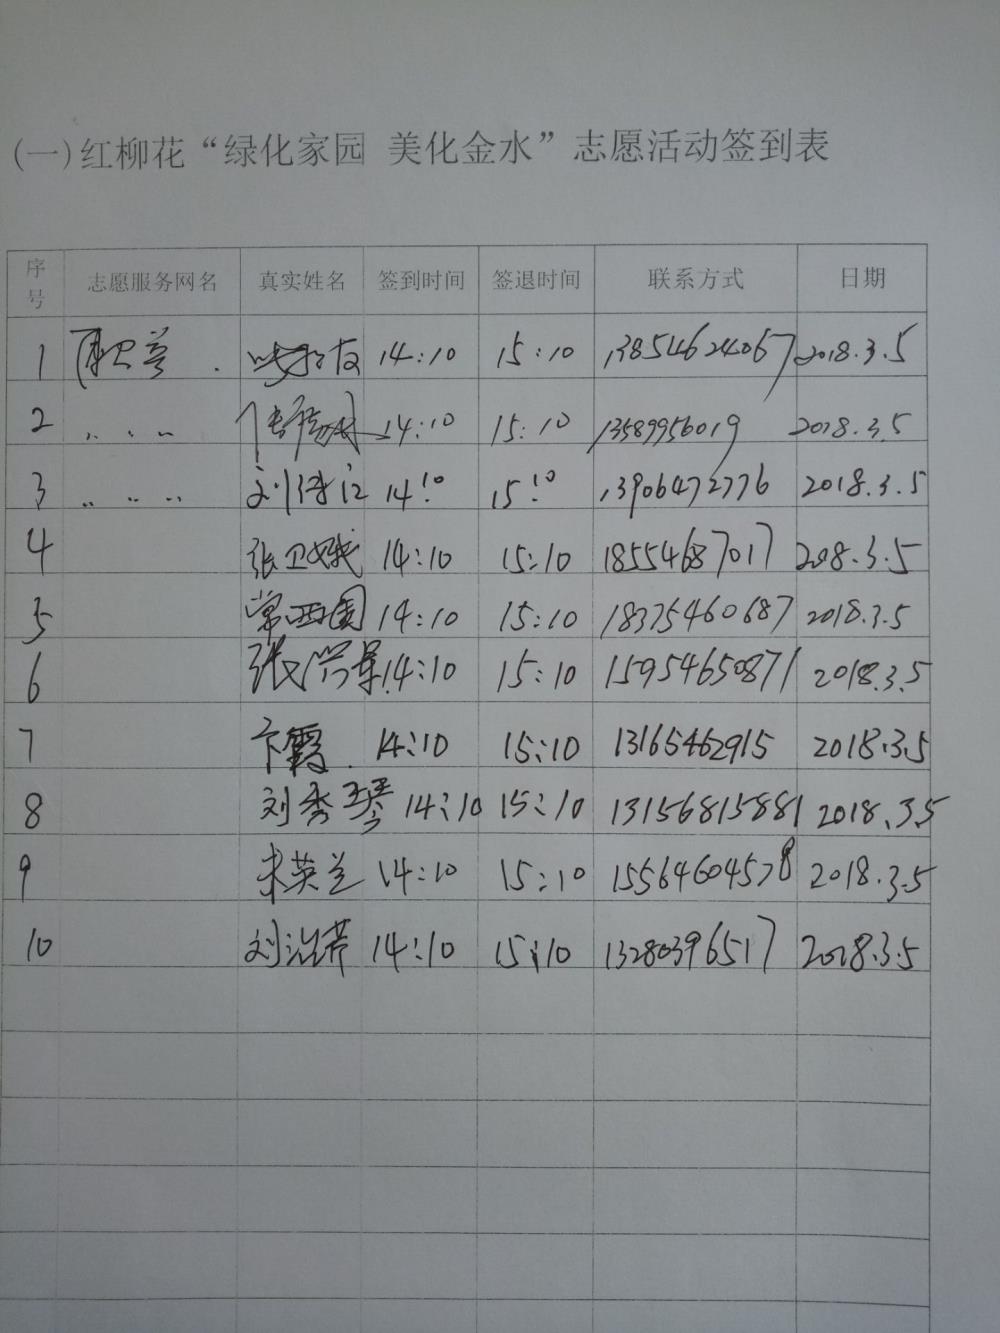 (一)红柳花“绿化家园 美化金水”志愿活动签到表
序号 志愿服务网名 真实姓名 签到时间 签退时间 联系方式 日期
1 14:10 15:10 13854624067 2018.3.5
2 〃 〃 〃 14:10 15:10 13589956019 2018.3.5
3 〃 〃 〃 刘 江 14:10 15:10 13906472776 2018.3.5
4 张卫娥 14:10 15:10 18554687017 2018.3.5
5 常西国 14:10 15:10 18375460687 2018.3.5
6 张兴军 14:10 15:10 15954650871 2018.3.5
7 卞霞 14:10 15:10 13165462915 2018.3.5
8 刘秀琴 14:10 15:10 13156815881 2018.3.5
9 英兰 14:10 15:10 15564604578 2018.3.5
10 刘 芹 14:10 15:10 13280396517 2018.3.5